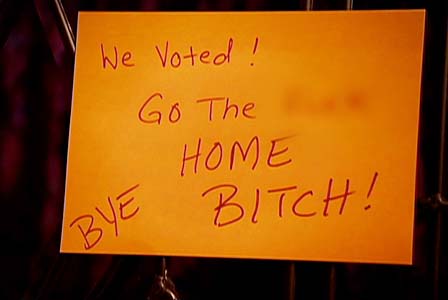 We Voted!
Go The
HOME
BYE BITCH!